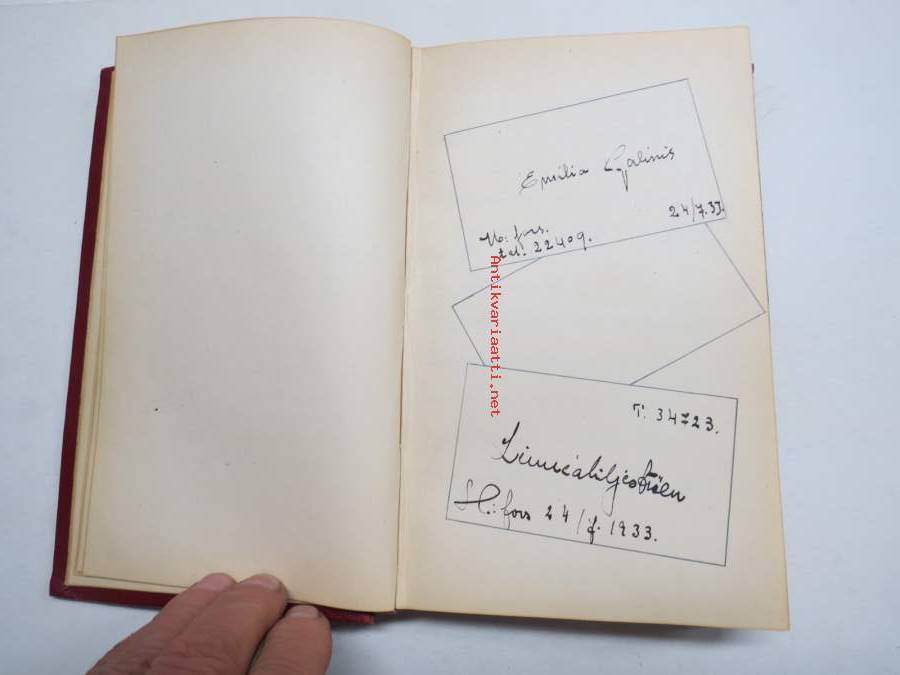 Emilia Galinis
24/7.33.
H:fors.
tel. 22409.
Antikvariaatti.net
T: 34723.
H:fors 24/7. 1933.